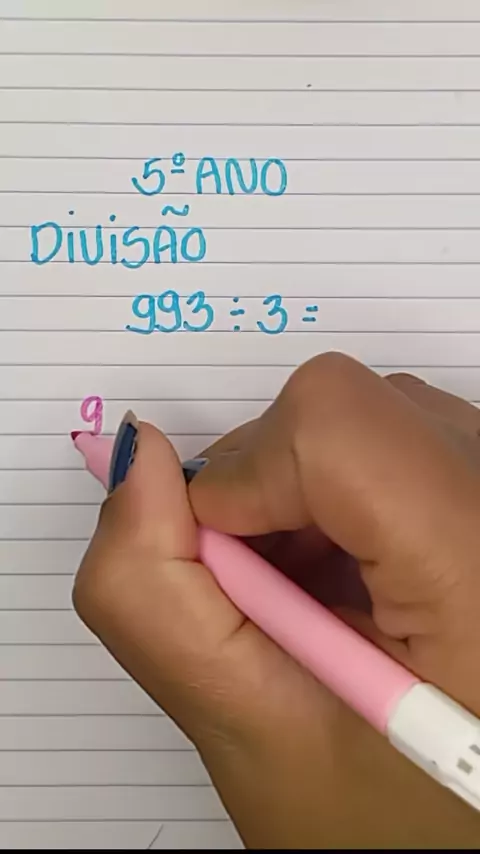 5º ANO
DIVISÃO
993 ÷ 3 =
9